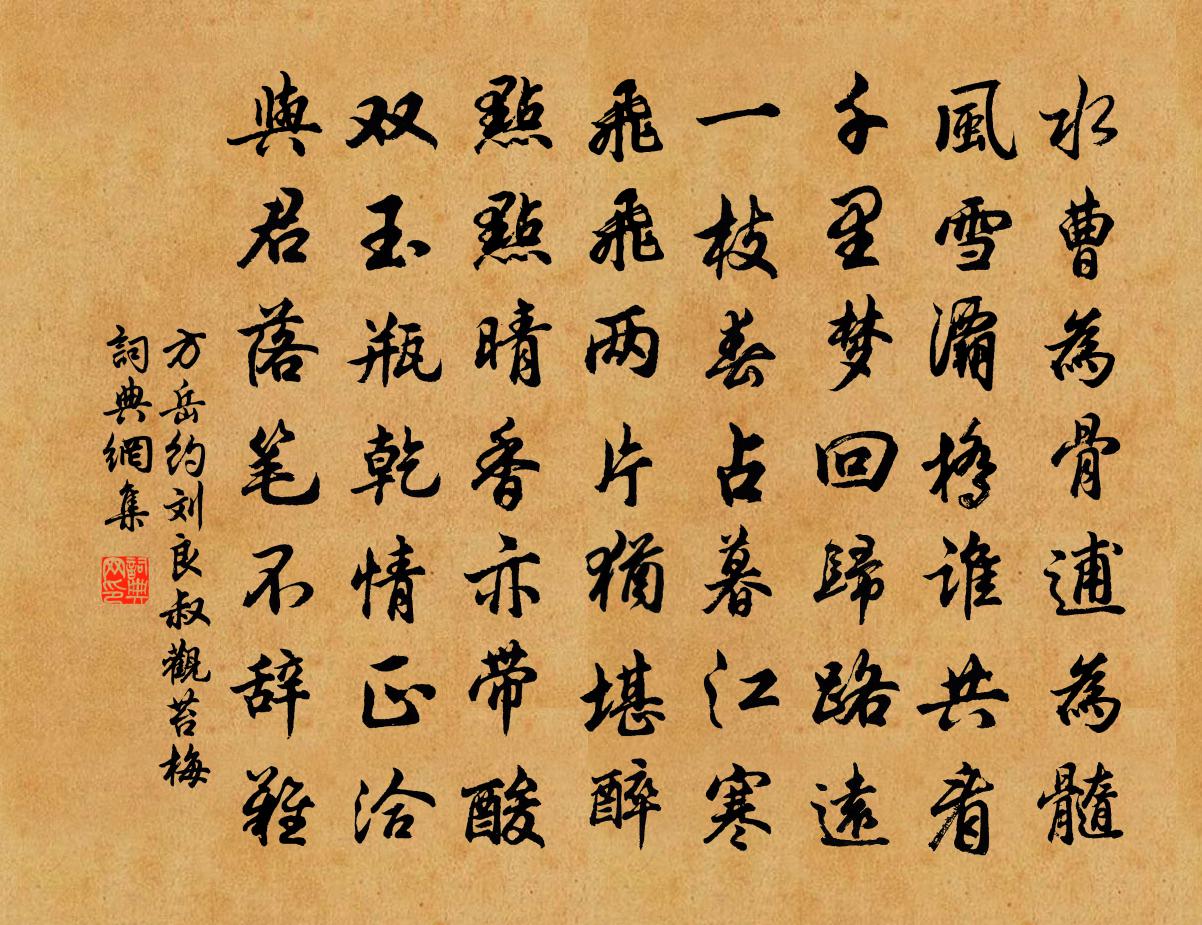 水曹為骨逋為髓
風雪灞橋誰共看
千里梦回歸路遠
一枝春占暮江寒
飛飛两片猶堪醉
點點晴香亦带酸
双玉瓶乾情正洽
與君落笔不辞難
方岳约刘良叔觀苔梅
詞典網集
詞典网印